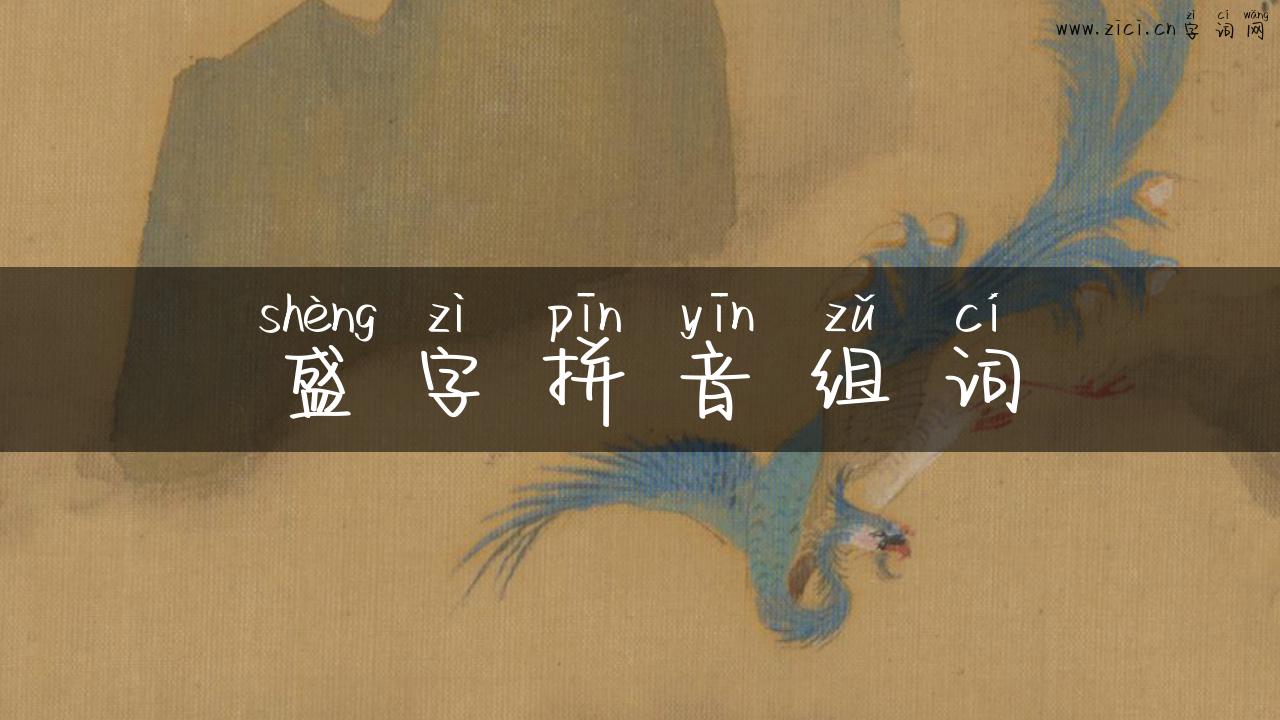 zì cí wǎng
www.zici.cn字词网
shèng zì pīn yīn zǔ cí
盛字拼音组词